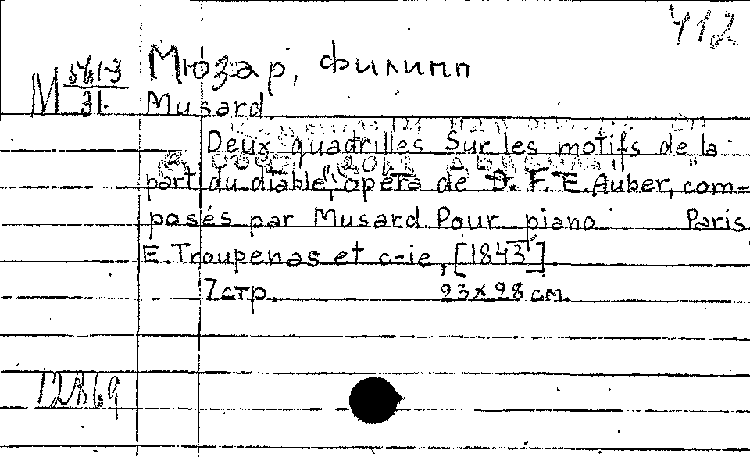 412
Мюзар, Филипп
М 561-3
31
Musard.
Deux quadrilles sur les motifs de "la
part du diable", opéra de D. F. E. Auber, com=
posés par Musard. Pour piano. Paris,
E. Troupenas et c-ie, [1843].
7 стр. 23 x 28 см.
12869